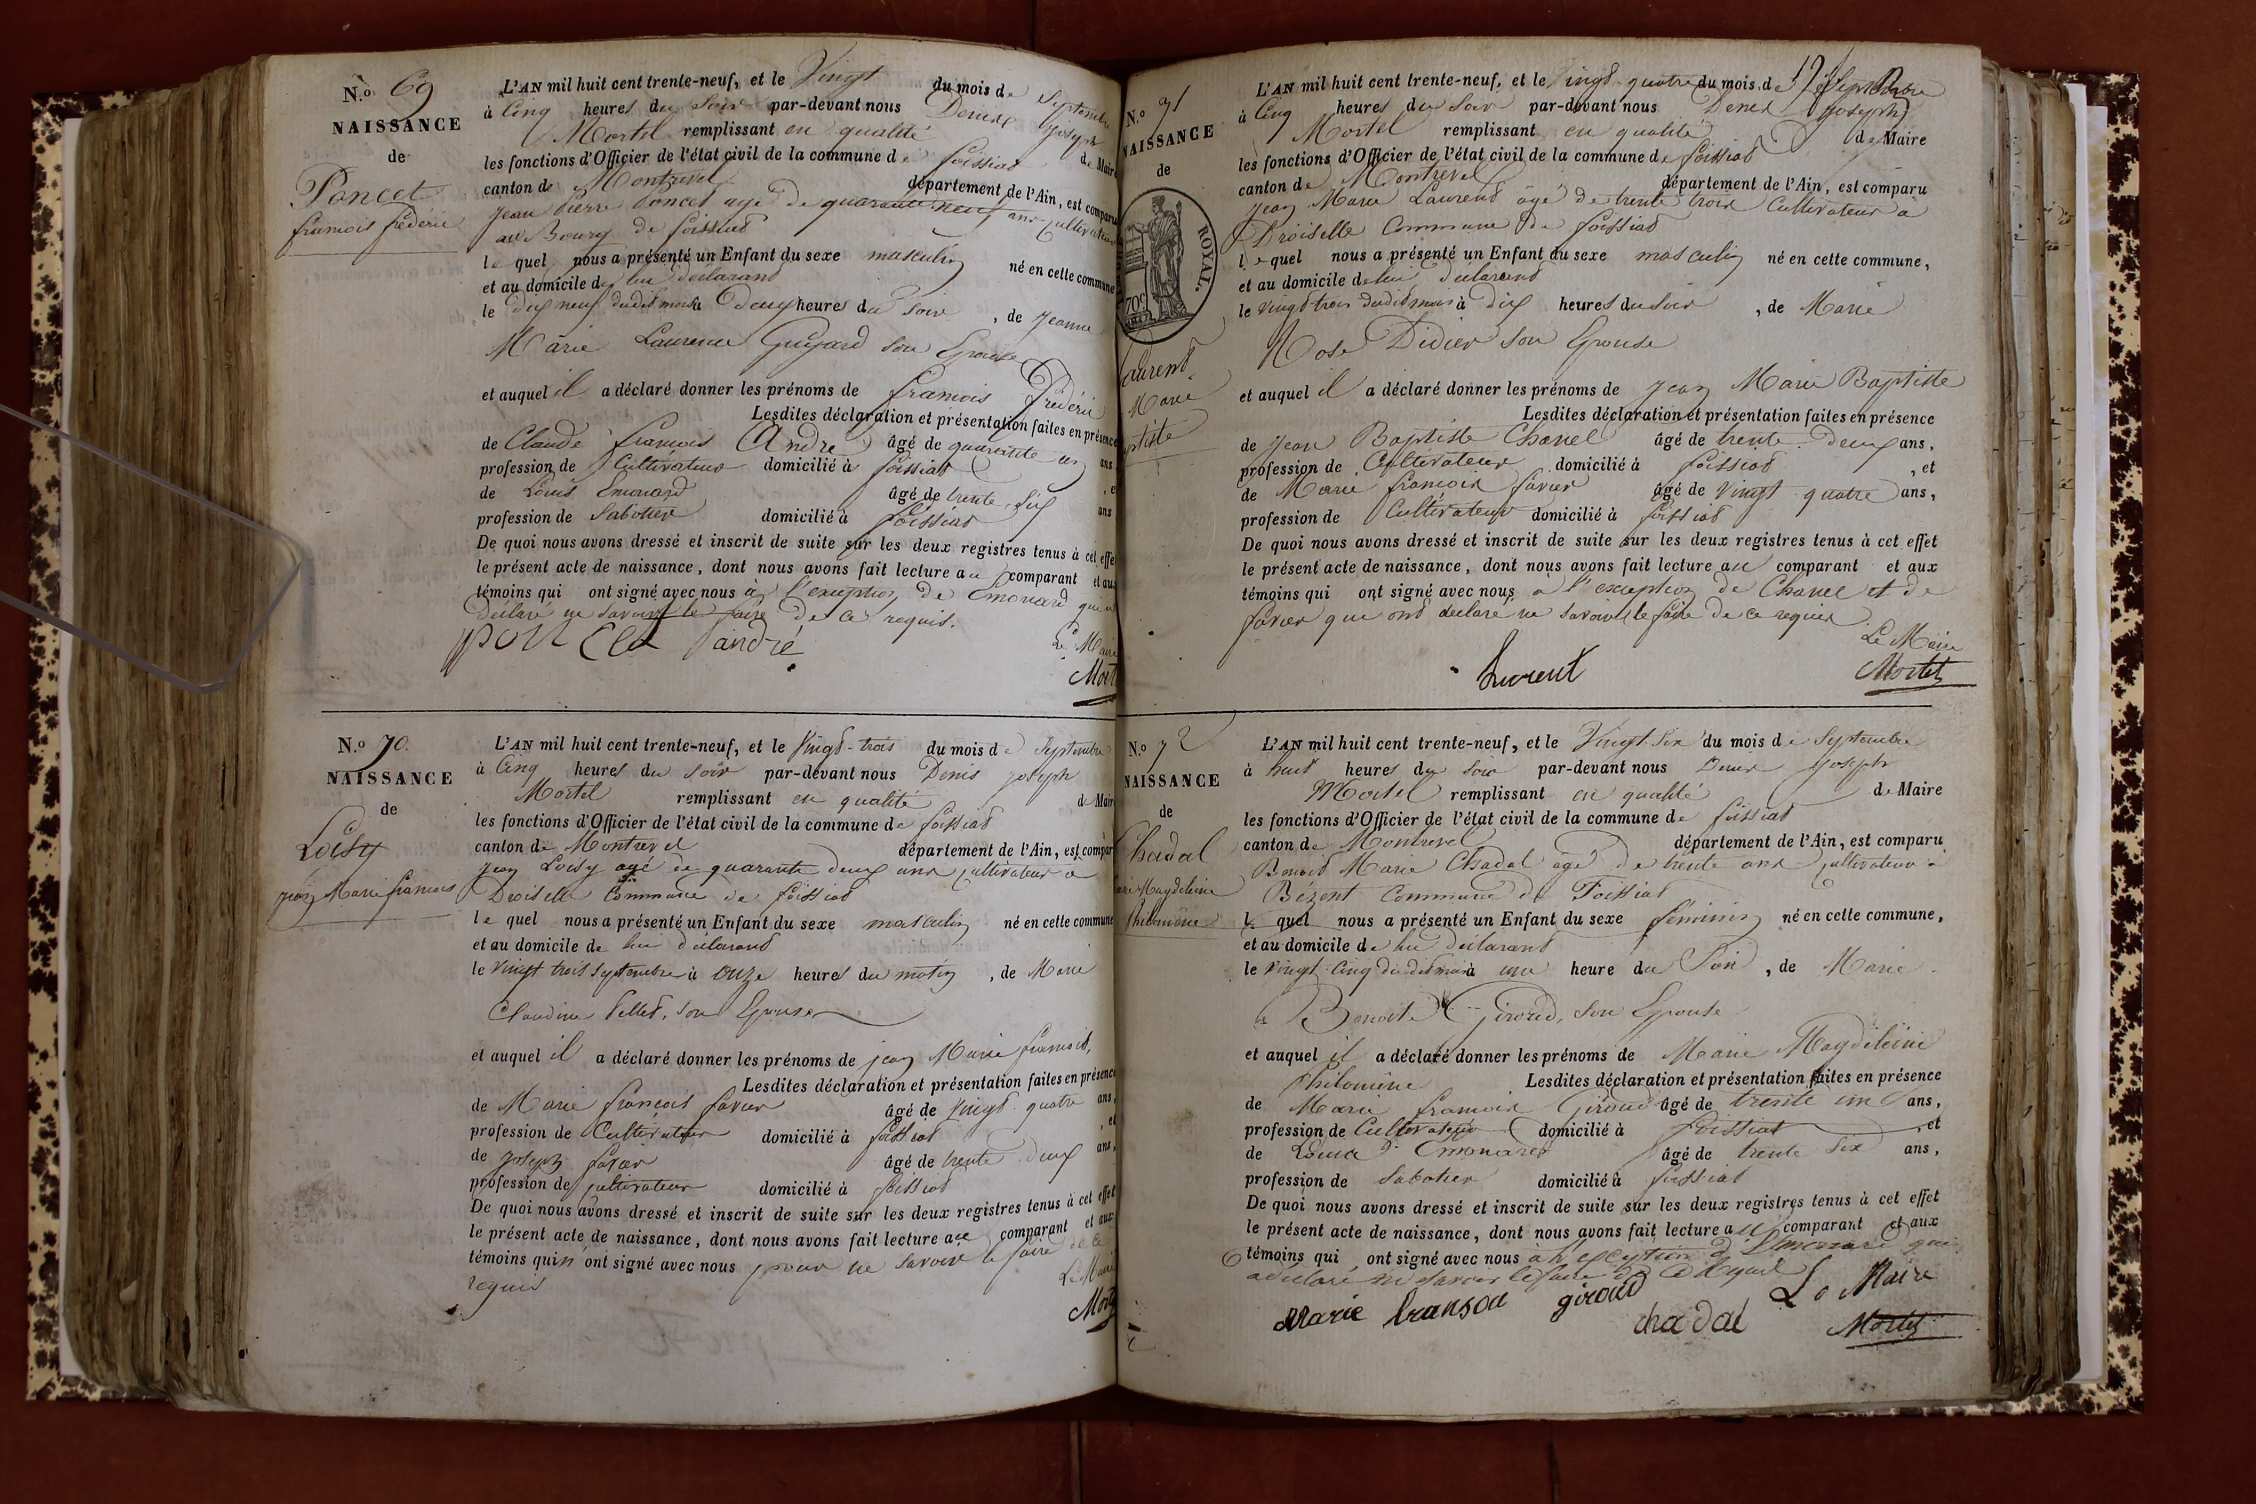 N.o 69
NAISSANCE
de
Poncet
francois frédéric
L'AN mil huit cent trente-neuf, et le Vingt du mois de Septembre
à Cinq heures du soir par-devant nous Denis Joseph
Mortel remplissant en qualité de Maire
les fonctions d'Officier de l'état civil de la commune de foissiat
canton de Montrevel département de l'Ain, est comparu
Jean Pierre Poncet agé de quarante neuf ans cultivateur
au Bourg de foissiat
le quel nous a présenté un Enfant du sexe masculin né en cette commune
et au domicile de lui déclarant
le dix neuf dudit mois à Deux heures du soir, de Jeanne
Marie Laurence Guyard son Epouse
et auquel il a déclaré donner les prénoms de francois frédéric
Lesdites déclaration et présentation faites en présence
de Claude francois André âgé de quarante un ans
profession de Cultivateur domicilié à foissiat, et
de Louis Emonard âgé de trente six ans
profession de Sabotier domicilié à foissiat
De quoi nous avons dressé et inscrit de suite sur les deux registres tenus à cet effet
le présent acte de naissance, dont nous avons fait lecture au comparant et aux
témoins qui ont signé avec nous à l'exception de Emonard qui a
déclaré ne savoir le faire de ce requis.
poncet andré
Le Maire
Mortel
N.o 70
NAISSANCE
de
Loisy
Jean Marie francois
L'AN mil huit cent trente-neuf, et le Vingt-trois du mois de Septembre
à Cinq heures du soir par-devant nous Denis Joseph
Mortel remplissant en qualité de Maire
les fonctions d'Officier de l'état civil de la commune de foissiat
canton de Montrevel département de l'Ain, est comparu
Jean Loisy agé de quarante deux ans cultivateur à
Droiselle Commune de foissiat
le quel nous a présenté un Enfant du sexe masculin né en cette commune
et au domicile de lui déclarant
le vingt trois septembre à onze heures du matin, de Marie
Claudine Pellet, son Epouse
et auquel il a déclaré donner les prénoms de jean Marie francois,
Lesdites déclaration et présentation faites en présence
de Marie francois favier âgé de Vingt quatre ans,
profession de Cultivateur domicilié à foissiat, et
de joseph favier âgé de trente deux ans,
profession de cultivateur domicilié à foissiat
De quoi nous avons dressé et inscrit de suite sur les deux registres tenus à cet effet
le présent acte de naissance, dont nous avons fait lecture au comparant et aux
témoins qui n'ont signé avec nous pour ne savoir le faire de ce
requis
Le Maire
Mortel
N.o 71
NAISSANCE
de
ROYAL.
Laurent
Marie
Baptiste
L'AN mil huit cent trente-neuf, et le Vingt quatre du mois de Septembre
à Cinq heures du soir par-devant nous Denis Joseph
Mortel remplissant en qualité de Maire
les fonctions d'Officier de l'état civil de la commune de foissiat
canton de Montrevel département de l'Ain, est comparu
Jean Marie Laurent âgé de trente trois Cultivateur à
Droiselle Commune de foissiat
le quel nous a présenté un Enfant du sexe masculin né en cette commune,
et au domicile de lui déclarant
le vingt trois dudit mois à dix heures du soir, de Marie
Rose Didier son Epouse
et auquel il a déclaré donner les prénoms de Jean Marie Baptiste
Lesdites déclaration et présentation faites en présence
de Jean Baptiste Chanel âgé de trente deux ans,
profession de Cultivateur domicilié à foissiat, et
de Marie francois favier âgé de vingt quatre ans,
profession de Cultivateur domicilié à foissiat
De quoi nous avons dressé et inscrit de suite sur les deux registres tenus à cet effet
le présent acte de naissance, dont nous avons fait lecture au comparant et aux
témoins qui ont signé avec nous à l'exception de Chanel et de
favier qui ont déclaré ne savoir le faire de ce requis
Le Maire
Mortel
N.o 72
NAISSANCE
de
Chadal
Marie Magdeleine
Philomène
L'AN mil huit cent trente-neuf, et le Vingt six du mois de Septembre
à huit heures du soir par-devant nous Denis Joseph
Mortel remplissant en qualité de Maire
les fonctions d'Officier de l'état civil de la commune de foissiat
canton de Montrevel département de l'Ain, est comparu
Benoit Marie Chadal agé de trente ans cultivateur à
Bézent Commune de Foissiat
le quel nous a présenté un Enfant du sexe féminin né en cette commune,
et au domicile de lui déclarant
le vingt cinq dudit mois à une heure du Soir, de Marie
Benoite Giroud, son Epouse
et auquel il a déclaré donner les prénoms de Marie Magdeleine
Philomène Lesdites déclaration et présentation faites en présence
de Marie francois Giroud âgé de trente un ans,
profession de Cultivateur domicilié à foissiat, et
de Louis Emonard âgé de trente six ans,
profession de Sabotier domicilié à foissiat
De quoi nous avons dressé et inscrit de suite sur les deux registres tenus à cet effet
le présent acte de naissance, dont nous avons fait lecture au comparant et aux
témoins qui ont signé avec nous à l'exception d'Emonard qui
a déclaré ne savoir le faire de ce Requis
Marie fransoa giroud chadal Le Maire
Mortel